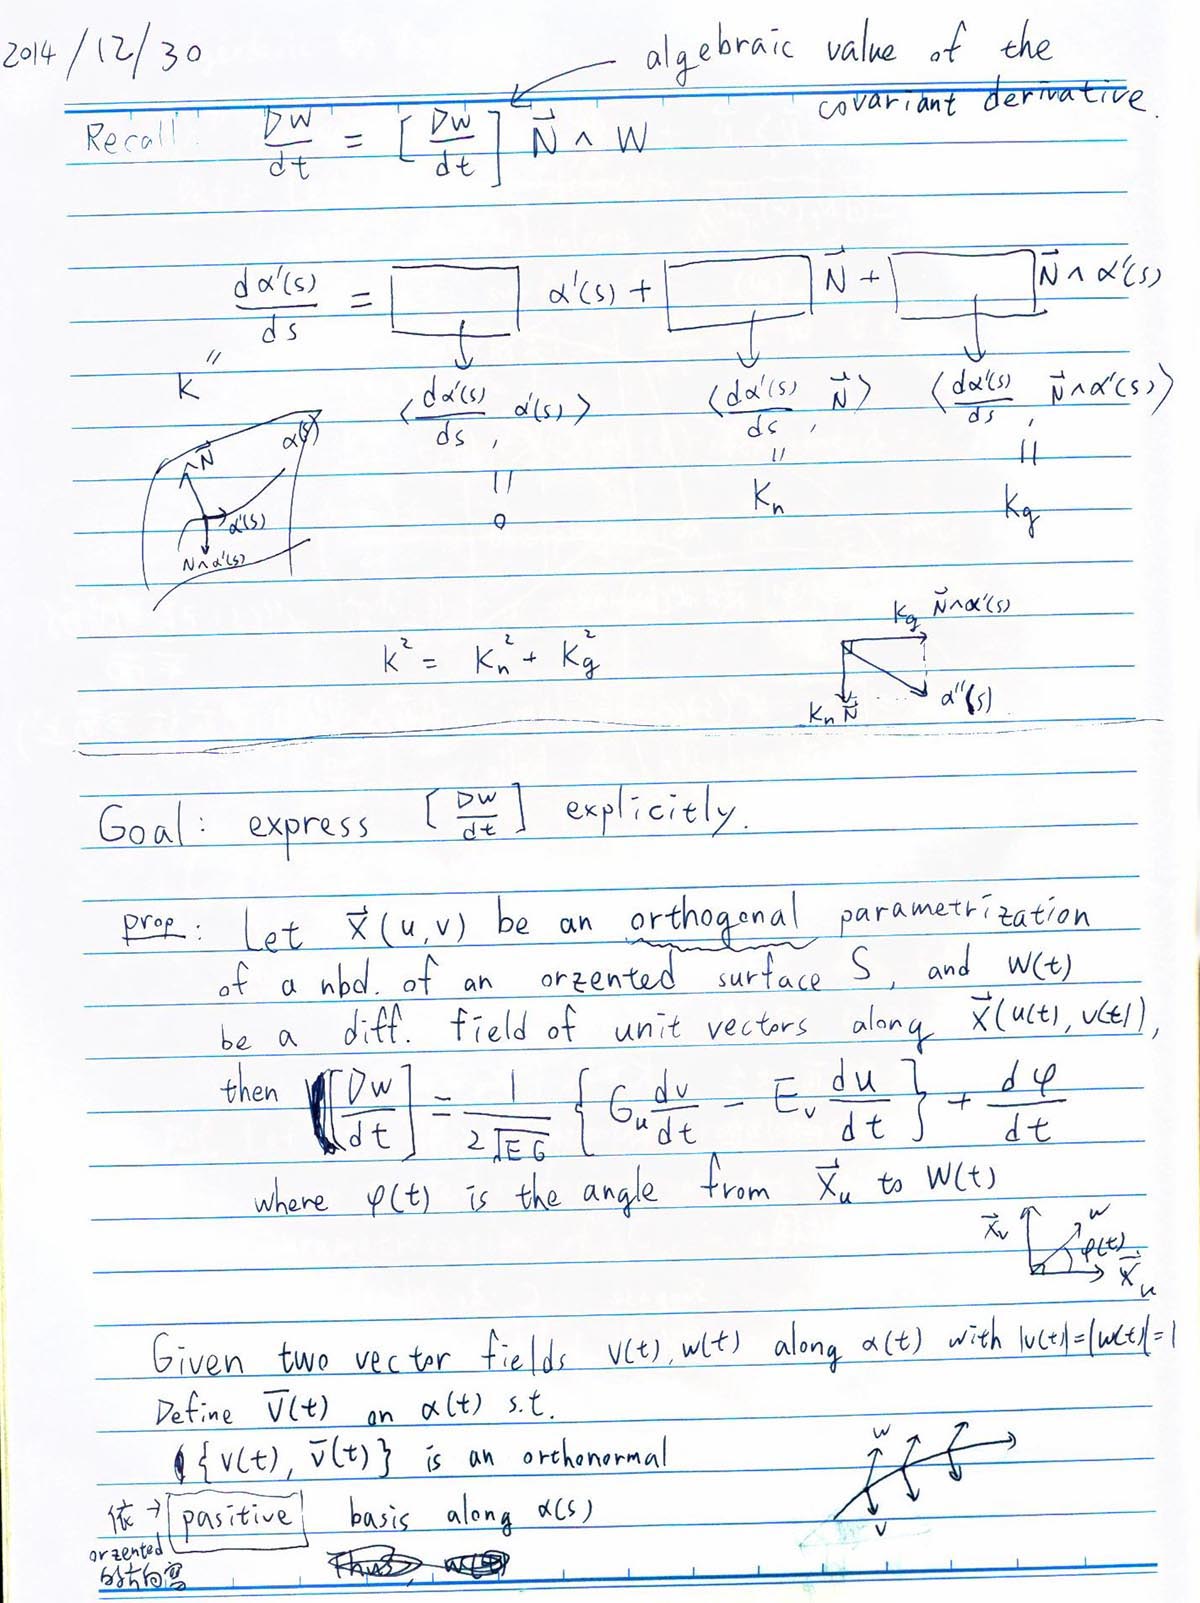 2014/12/30
algebraic value of the
covariant derivative.
Recall: Dw/dt = [Dw/dt] N⃗ ∧ W
dα'(s)/ds = □ α'(s) + □ N⃗ + □ N⃗ ∧ α'(s)
" k
⟨dα'(s)/ds, α'(s)⟩ ⟨dα'(s)/ds, N⃗⟩ ⟨dα'(s)/ds, N⃗∧α'(s)⟩
|| || ||
0 Kn Kg
α(s)
N⃗
α'(s)
N∧α'(s)
k² = Kn² + Kg²
Kg N⃗∧α'(s)
Kn N⃗
α''(s)
Goal: express [Dw/dt] explicitly.
prop: Let X⃗(u,v) be an orthogonal parametrization
of a nbd. of an orzented surface S, and W(t)
be a diff. field of unit vectors along X⃗(u(t), v(t)),
then [Dw/dt] = 1/(2√EG) { Gu dv/dt − Ev du/dt } + dφ/dt
where φ(t) is the angle from X⃗u to W(t)
X⃗v w φ(t) X⃗u
Given two vector fields v(t), w(t) along α(t) with |v(t)|=|w(t)|=1
Define V̄(t) on α(t) s.t.
{v(t), v̄(t)} is an orthonormal
依→ pasitive basis along α(s)
orzented
Thus, w(t)
w
v